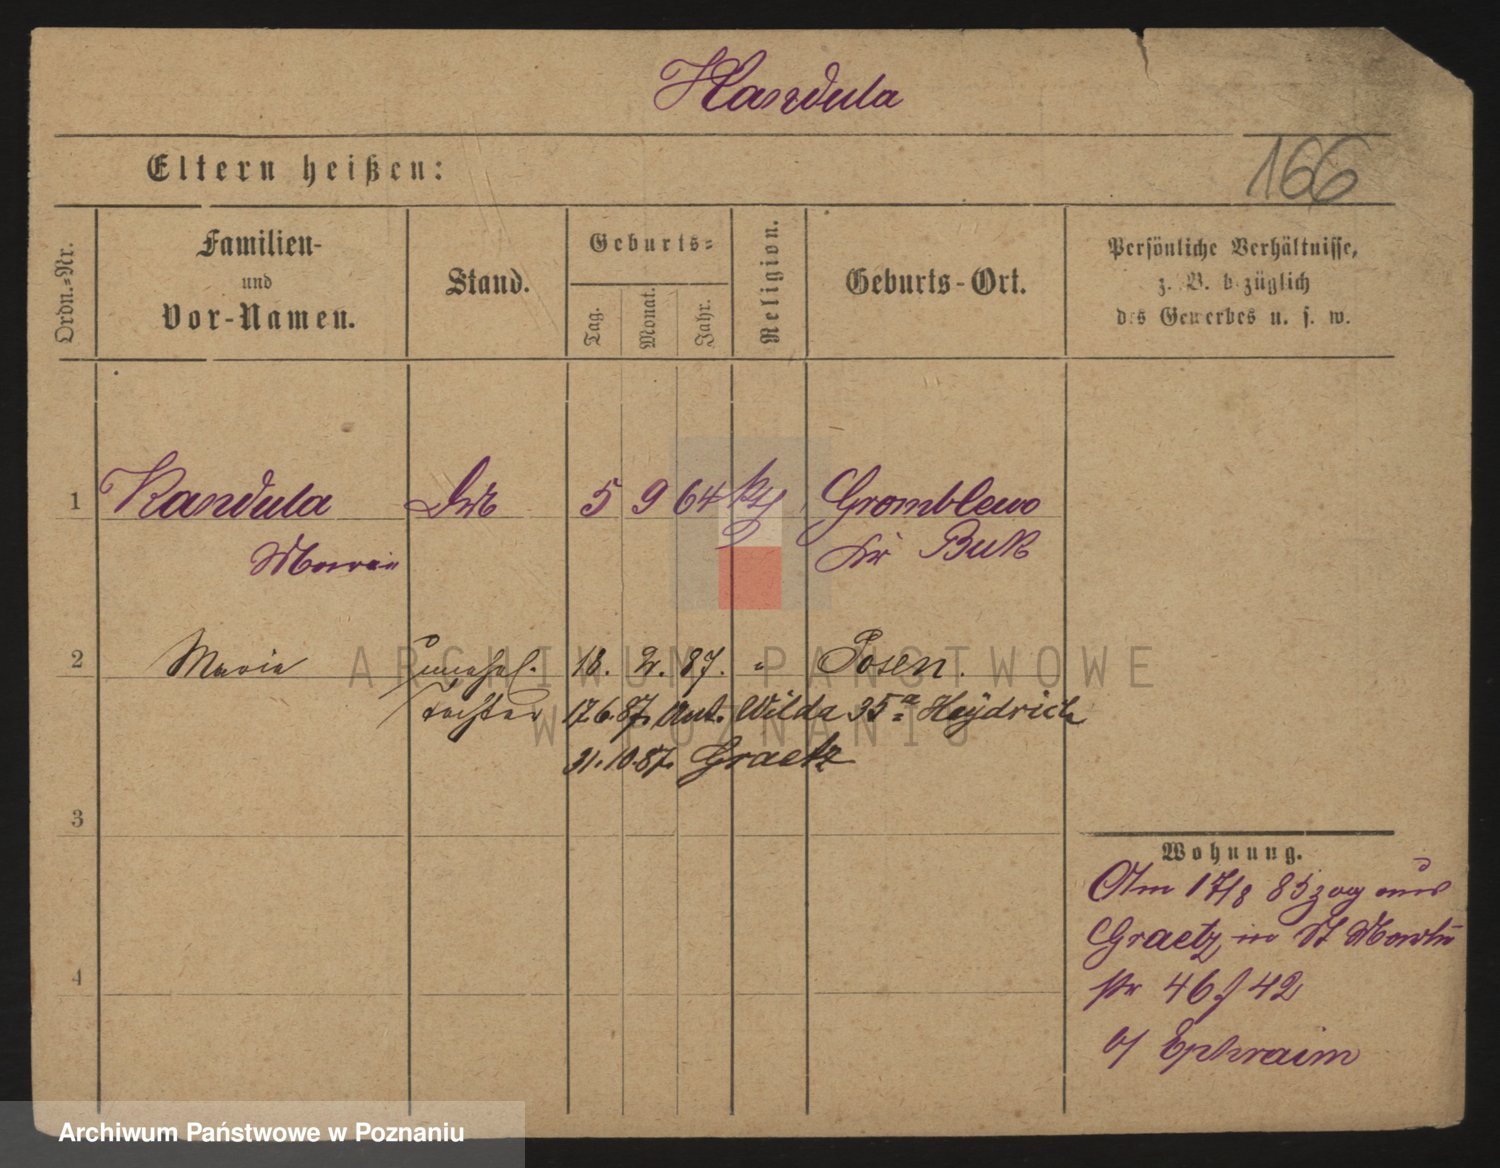 Kandula
166
Eltern heißen:
Ordn.-Nr.
Familien-
und
Vor-Namen.
Stand.
Geburts-
Tag.
Monat.
Jahr.
Religion.
Geburts-Ort.
Persönliche Verhältnisse,
z. B. bezüglich
des Gewerbes u. s. w.
1 Kandula 5 9 64 Gromblewo
Buk
2 Maria unehel. 18. 2. 87. " Posen.
Tochter 17.6.87. Ant. Wilda 35a Heydrich
31.10.87. Graetz
3
4
Wohnung.
Am 17/8 85 zog aus
Graetz in St Martin
str 46 42
b/ Ephraim
ARCHIWUM PAŃSTWOWE
W POZNANIU
Archiwum Państwowe w Poznaniu